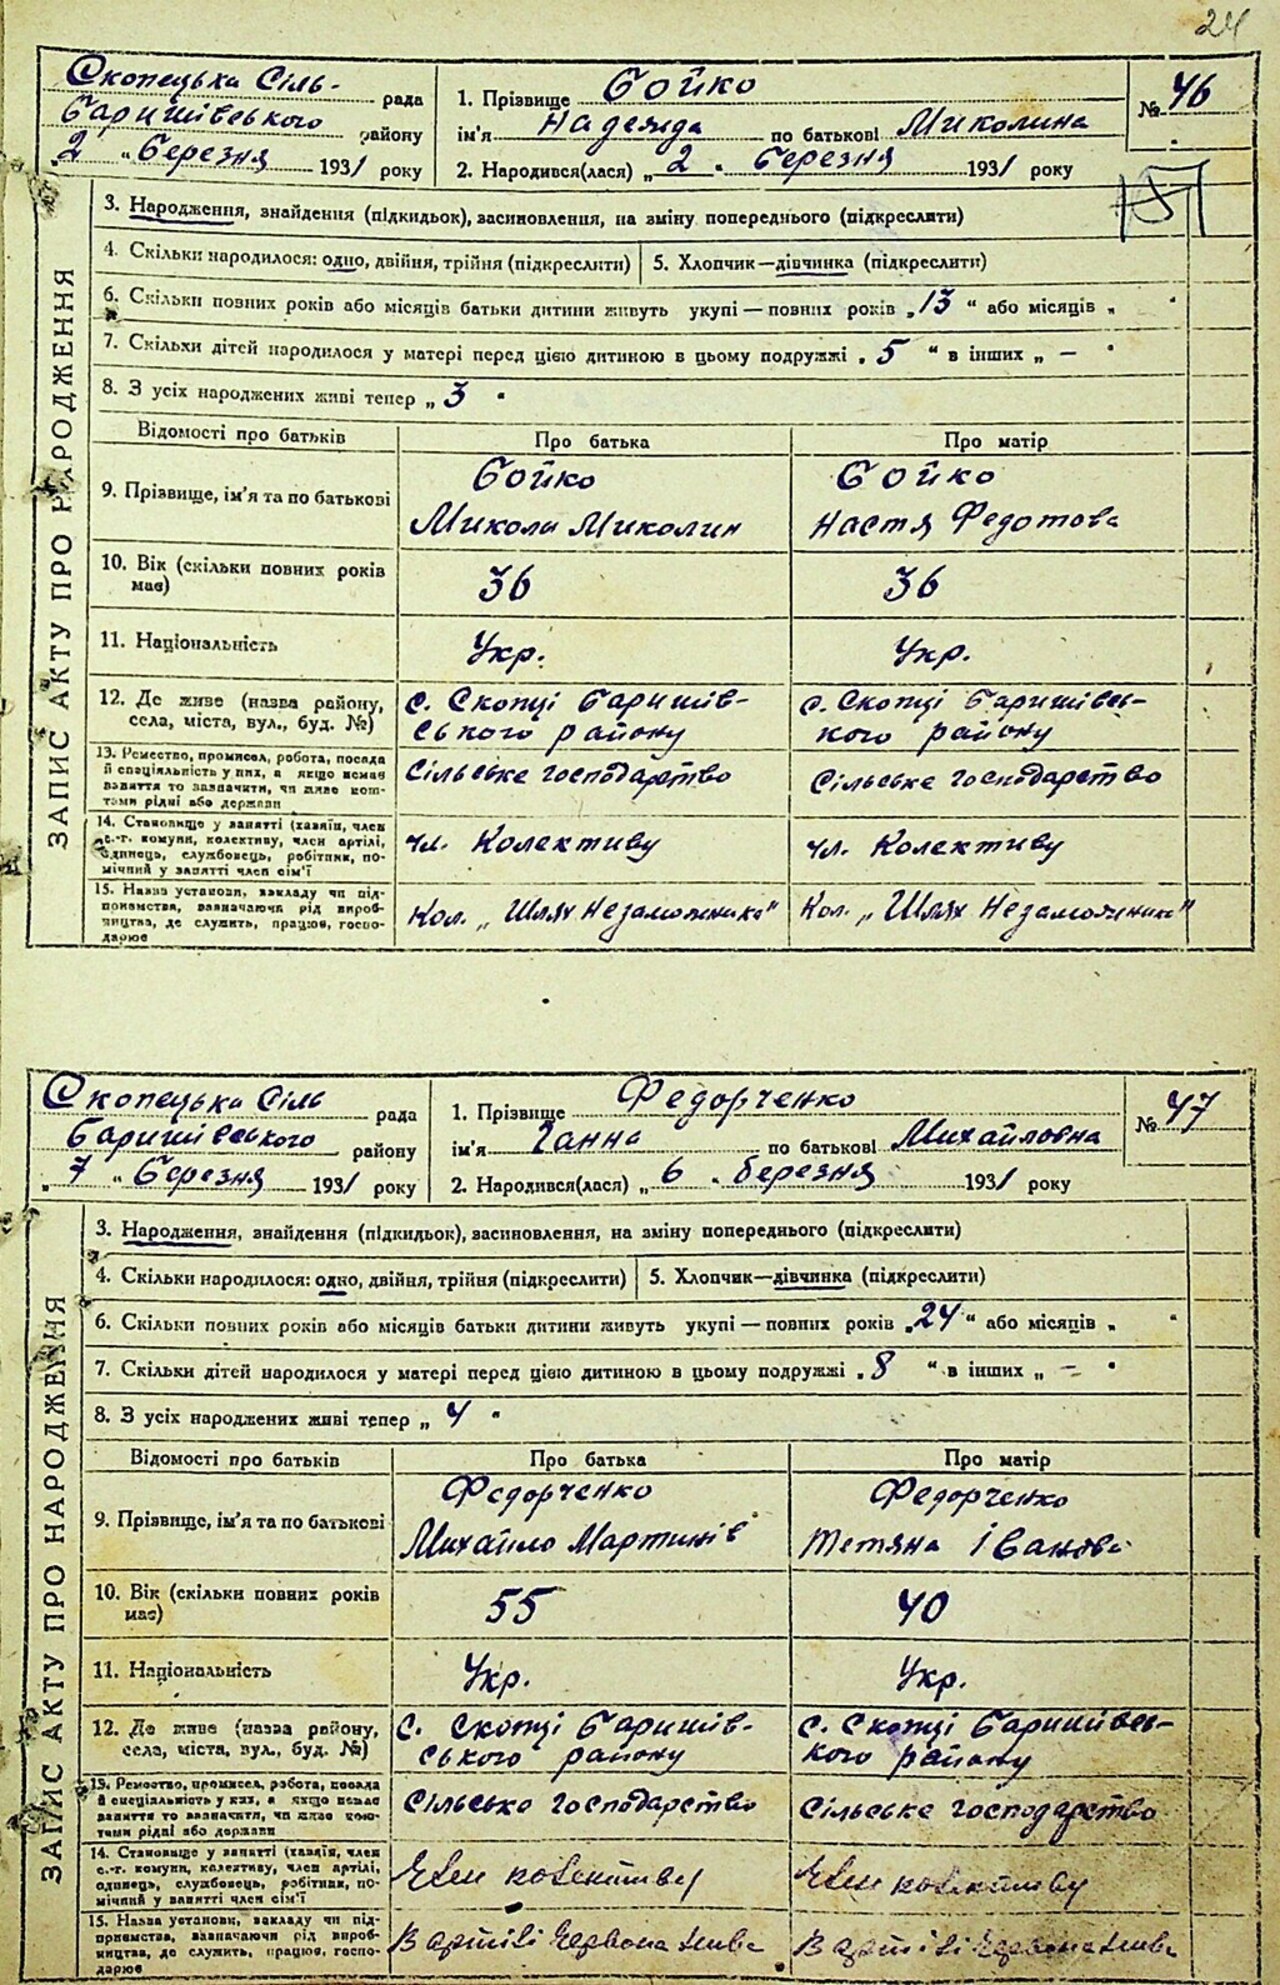 24
Скопецька Сіль- рада
Баришівського району
„2 “ Березня 1931 року
1. Прізвище Бойко
ім'я Надежда по батькові Миколина
2. Народився(лася) „ 2 “ Березня 1931 року
№ 46
ЗАПИС АКТУ ПРО НАРОДЖЕННЯ
3. Народження, знайдення (підкидьок), засиновлення, на зміну попереднього (підкреслити)
4. Скільки народилося: одно, двійня, трійня (підкреслити) 5. Хлопчик—дівчинка (підкреслити)
6. Скільки повних років або місяців батьки дитини живуть укупі — повних років „13 “ або місяців „ “
7. Скільки дітей народилося у матері перед цією дитиною в цьому подружжі „ 5 “ в інших „ — “
8. З усіх народжених живі тепер „ 3 “
Відомості про батьків Про батька Про матір
9. Прізвище, ім'я та по батькові
Бойко Бойко
Микола Миколин Настя Федотова
10. Вік (скільки повних років має) 36 36
11. Національність Укр. Укр.
12. Де живе (назва району, села, міста, вул., буд. №)
с. Скопці Баришів- с. Скопці Баришівсь-
ського району кого району
13. Ремество, промисел, робота, посада
й спеціальність у них, а якщо немає
заняття то зазначити, чи живе кош-
тами рідні або держави
Сільське господарство Сільське господарство
14. Становище у занятті (хазяїн, член
с.-г. комуни, колективу, член артілі,
одинець, службовець, робітник, по-
мічний у занятті член сім'ї
чл. Колективу чл. Колективу
15. Назва установи, закладу чи під-
приємства, зазначаючи рід вироб-
ництва, де служить, працює, госпо-
дарює
Кол. „Шлях Незаможника" Кол. „Шлях Незаможника"
Скопецька Сіль рада
Баришівського району
„ 7 “ Березня 1931 року
1. Прізвище Федорченко
ім'я Ганна по батькові Михайловна
2. Народився(лася) „ 6 “ березня 1931 року
№ 47
ЗАПИС АКТУ ПРО НАРОДЖЕННЯ
3. Народження, знайдення (підкидьок), засиновлення, на зміну попереднього (підкреслити)
4. Скільки народилося: одно, двійня, трійня (підкреслити) 5. Хлопчик—дівчинка (підкреслити)
6. Скільки повних років або місяців батьки дитини живуть укупі — повних років „24 “ або місяців „ “
7. Скільки дітей народилося у матері перед цією дитиною в цьому подружжі „ 8 “ в інших „ — “
8. З усіх народжених живі тепер „ 4 “
Відомості про батьків Про батька Про матір
9. Прізвище, ім'я та по батькові
Федорченко Федорченко
Михайло Мартинів Тетяна Іванова
10. Вік (скільки повних років має) 55 40
11. Національність Укр. Укр.
12. Де живе (назва району, села, міста, вул., буд. №)
с. Скопці Баришів- с. Скопці Баришівсь-
ського району кого району
13. Ремество, промисел, робота, посада
й спеціальність у них, а якщо немає
заняття то зазначити, чи живе кош-
тами рідні або держави
Сільське господарство Сільське господарство
14. Становище у занятті (хазяїн, член
с.-г. комуни, колективу, член артілі,
одинець, службовець, робітник, по-
мічний у занятті член сім'ї
Член колективу Член колективу
15. Назва установи, закладу чи під-
приємства, зазначаючи рід вироб-
ництва, де служить, працює, госпо-
дарює
В артілі Червона нива В артілі Червона нива